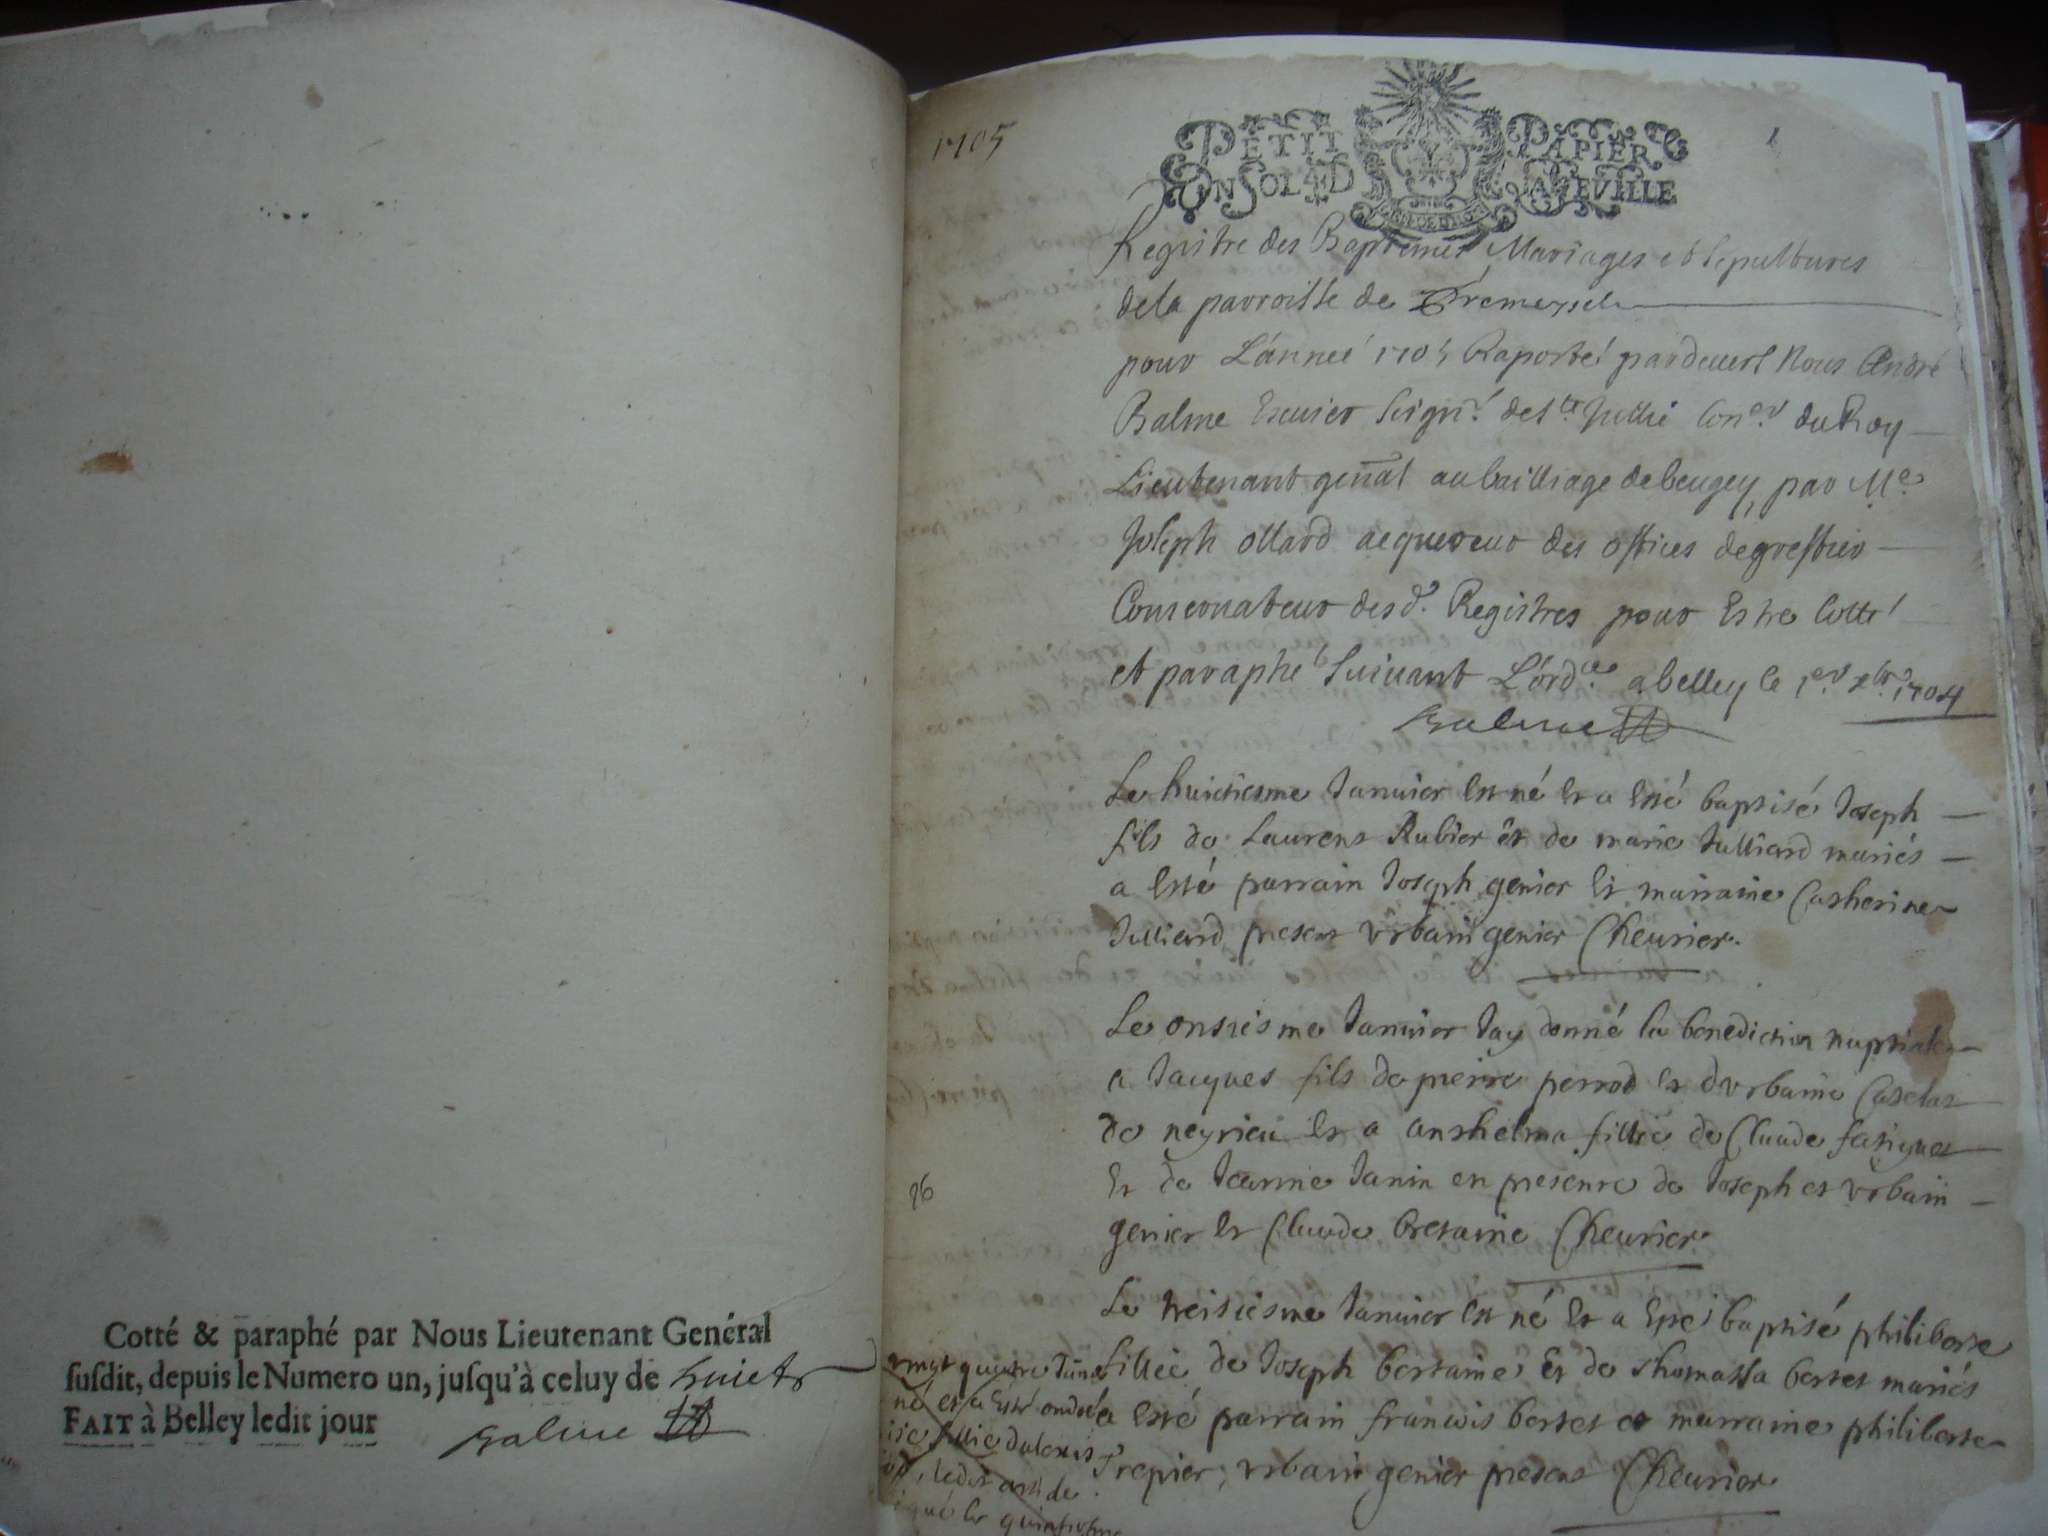 Cotté & paraphé par Nous Lieutenant Genéral
susdit, depuis le Numero un, jusqu'à celuy de huict
FAIT à Belley ledit jour
Balme
1705
1
PETIT PAPIER
UN SOL 4 D LA FEUILLE
Registre des Baptemes Mariages et Sepultures
de la parroisse de
pour L'année 1705 Raporté pardevert Nous André
Balme Escuier Seigr. de Ste Jullie Coner du Roy
Lieutenant genal au bailliage de beugey, par Me
Joseph ollard acquereur des offices de greffier
Conservateur desd. Registres pour Estre Cotté
et paraphé Suivant L'ordce a belley le 1er xbre 1704
Balme
Le huictiesme Januier est né et a esté baptisé Joseph
fils de Laurens Rubier et de marie Julliard mariés
a esté parrain Joseph genier et marraine Catherine
Julliard presens Vrbain genier Cheurier.
Le onsiesme Januier Jay donné la benediction nuptiale
a Jacques fils de pierre perrod et dvrbaine
de neyrieu et a anthelma fillie de Claude
Et de Jeanne Janin en presence de Joseph et vrbain
genier et Claude bretaine Cheurier.
96
Le treisiesme Januier est né et a esté baptisé philiberte
fillie de Joseph bertaine et de thomassa bertet mariés
a esté parrain francois bertet et marraine philiberte
Trepier, vrbain genier presens Cheurier
vingt quatre
né et a esté
fillie
ledit